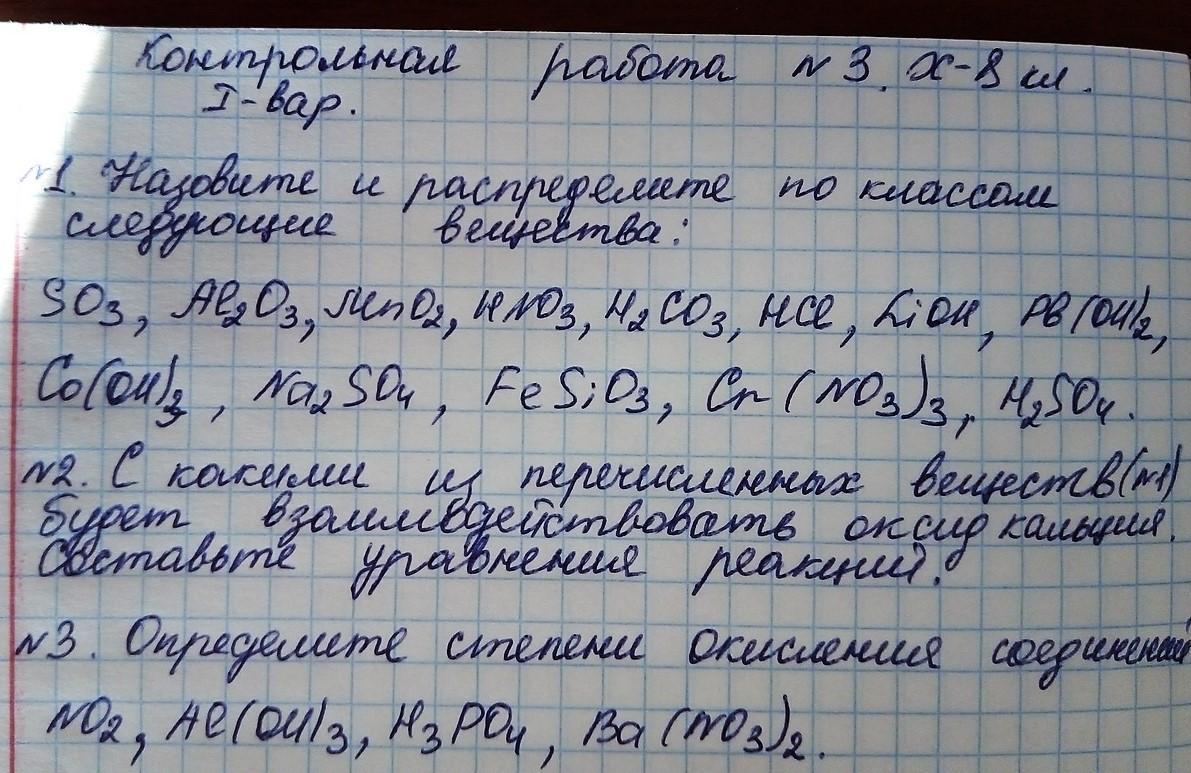 Контрольная работа №3. Х-8 кл.
I-вар.
№1. Назовите и распределите по классам
следующие вещества:
SO3, Al2O3, MnO2, HNO3, H2CO3, HCl, LiOH, Pb(OH)2,
Co(OH)3, Na2SO4, FeSiO3, Cr(NO3)3, H2SO4.
№2. С какими из перечисленных веществ(№1)
будет взаимодействовать оксид кальция.
Составьте уравнения реакций.
№3. Определите степени окисления соединений
NO2, Al(OH)3, H3PO4, Ba(NO3)2.